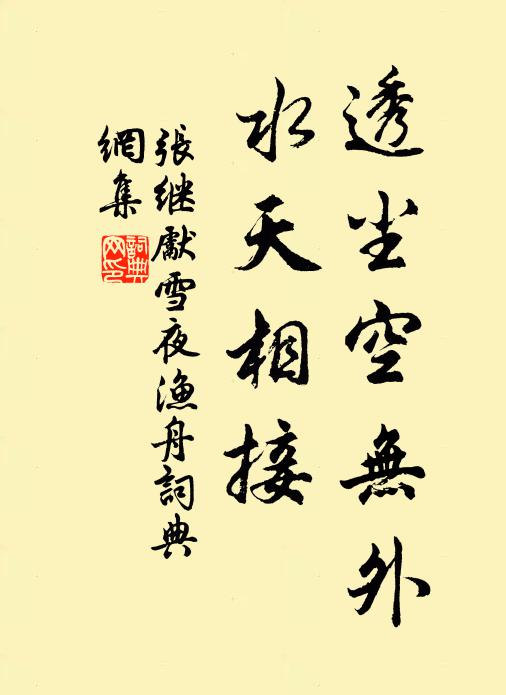 透尘空無外
水天相接
張继獻雪夜漁舟詞典
網集
詞典
网印